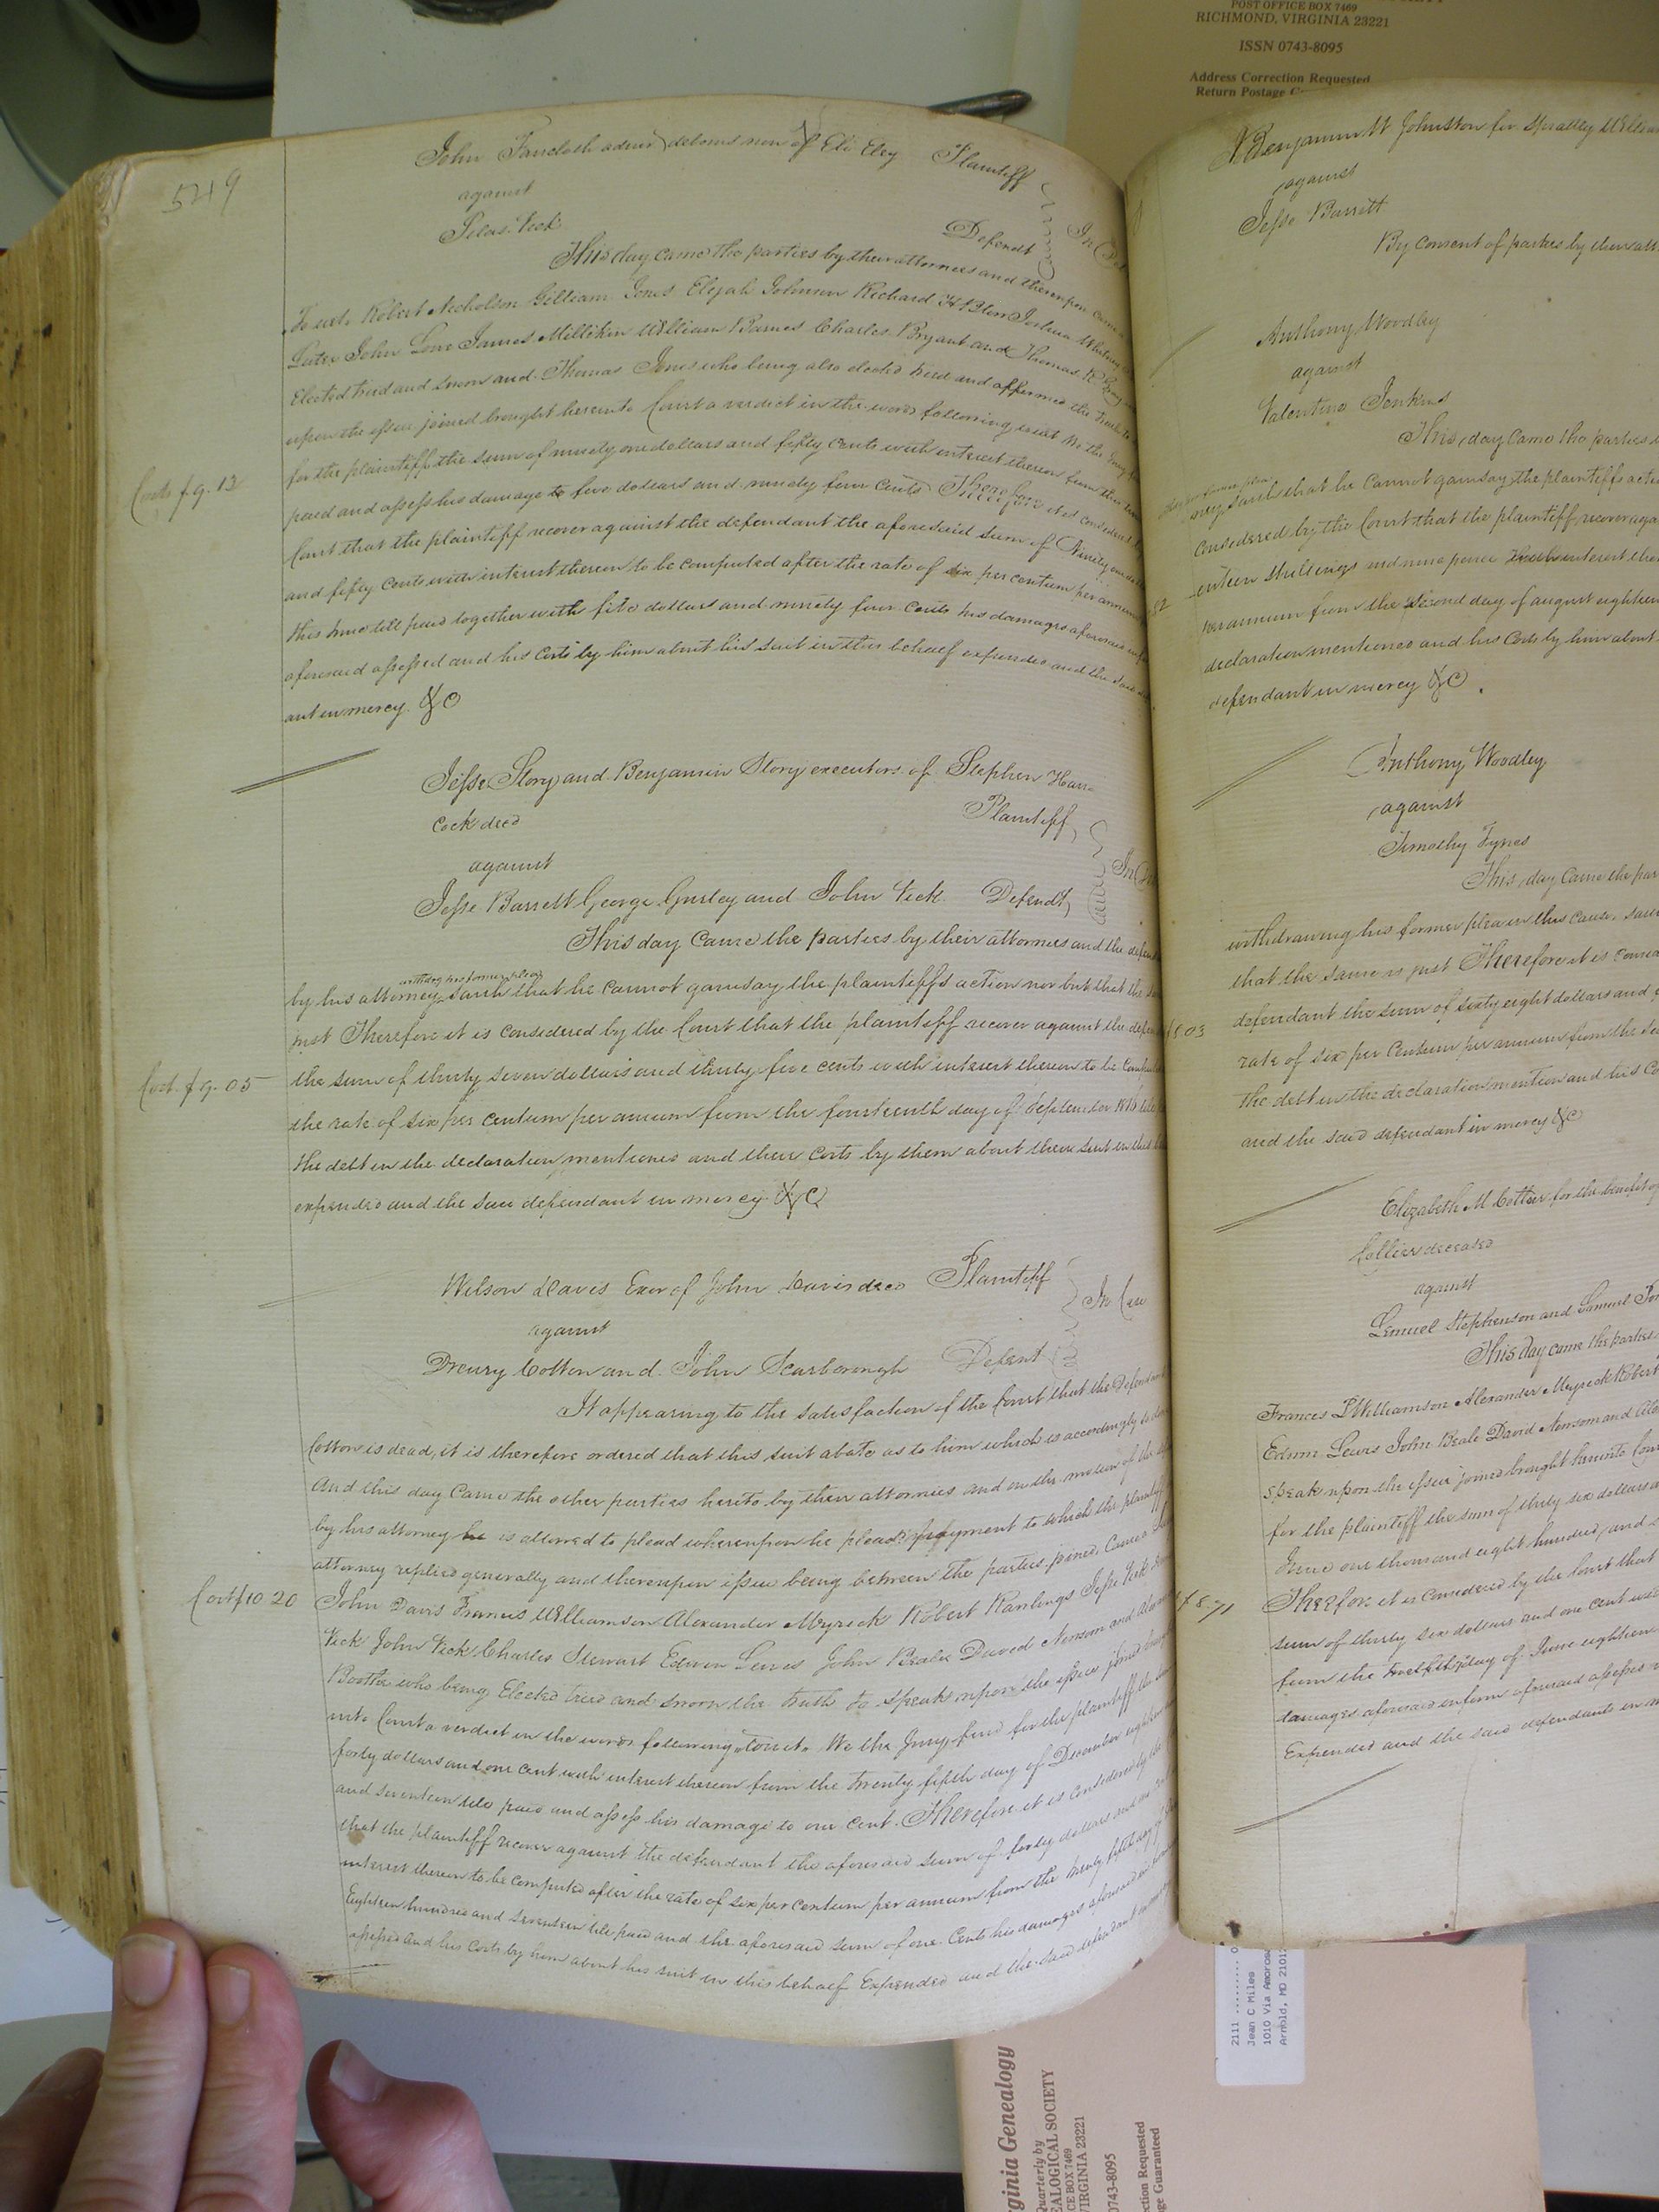 POST OFFICE BOX 7469
RICHMOND, VIRGINIA 23221
ISSN 0743-8095
Address Correction Requested
Return Postage
549
John Faircloth admr debonis non of Eli Eley Plaintiff
against
Silas Vick Defendt
This day came the parties by their attornies and thereupon came
To wit. Robert Nicholson Gilliam Jones Elijah Johnson Richard Joshua
John Love James Millikin William Barnes Charles Bryant and Thomas
Elected tried and sworn and Thomas Jones who being also elected tried and affirmed the truth to
upon the issue joined brought hereinto Court a verdict in the words following to wit We the Jury
for the plaintiff the sum of ninety one dollars and fifty cents with interest thereon from
Costs $9.12
paid and assess his damage to five dollars and ninety four cents Therefore it is considered
Court that the plaintiff recover against the defendant the aforesaid sum of Ninety one
and fifty cents with interest thereon to be computed after the rate of six per centum per annum
this time till paid together with five dollars and ninety four cents his damages aforesaid
aforesaid assessed and his Costs by him about his suit in this behalf expended and the said
ant in mercy &C
Jesse Story and Benjamin Story executors of Stephen Han-
cock decd Plaintiff
against
Jesse Barrett George Gurley and John Vick Defendt
This day Came the parties by their attornies and the
withdrawing his former plea
by his attorney saith that he cannot gainsay the plaintiffs action nor but that the
just Therefore it is considered by the Court that the plaintiff recover against the
Cost. $9.05
the sum of thirty seven dollars and thirty five cents with interest thereon to be
the rate of six per centum per annum from the fourteenth day of September 1816
the debt in the declaration mentioned and their Costs by them about their suit in this
expended and the said defendant in mercy &C
Wilson Davis Exor of John Davis decd Plaintiff
In Case
against
Drewry Cotton and John Scarborough Defent
It appearing to the satisfaction of the Court that the Defendant
Cotton is dead, it is therefore ordered that this suit abate as to him which is accordingly
And this day Came the other parties hereto by their attornies and on the motion of the
by his attorney he is allowed to plead whereupon he plead payment to which the plaintiff
attorney replied generally and thereupon issue being between the parties joined, Came
Cost $10 20
John Davis Francis Williamson Alexander Myrick Robert Rawlings Jesse Vick
Vick John Vick Charles Stewart Edwin Lewis John Beale David Newsom and
Boothe who being Elected tried and sworn the truth to speak upon the issue joined
into Court a verdict in the words following, towit. We the Jury find for the plaintiff the
forty dollars and one cent with interest thereon from the twenty fifth day of December
and seventeen till paid and assess his damage to one cent. Therefore it is considered by the
that the plaintiff recover against the defendant the aforesaid sum of forty dollars and
interest thereon to be computed after the rate of six per centum per annum from the twenty fifth day of
Eighteen hundred and seventeen till paid and the aforesaid sum of one Cents his damages aforesaid in
assessed and his Costs by him about his suit in this behalf Expended and the said defendant in mercy
Benjamin W Johnston for Spratley
against
Jesse Barrett
By Consent of parties by their
Anthony Woodley
against
Valentine Jenkins
This day Came the parties
saith that he Cannot gainsay the plaintiffs
Considered by the Court that the plaintiff recover
enteen Shillings and nine pence with interest
per annum from the second day of august eighteen
declaration mentioned and his Costs by him about
defendant in mercy &C.
Anthony Woodley
against
Timothy Tynes
This day Came the
withdrawing his former plea in this cause, saith
that the same is just Therefore it is
defendant the sum of sixty eight dollars and
rate of six per Centum per annum from the
the debt in the declaration mention and his
and the said defendant in mercy &C
Elizabeth M Cottier for the benefit
deceased
against
Lemuel Stephenson and Samuel
This day came the parties
Frances L Williamson Alexander Meyrick Robert
Edwin Lewis John Beale David Newsom and
Speak upon the issue joined brought hereinto
for the plaintiff the sum of thirty six dollars
June one thousand eight hundred and
$8.71
Therefore it is Considered by the Court that
sum of thirty six dollars and one cent
from the twelfth day of June eighteen
damages aforesaid in form aforesaid assessed
Expended and the said defendants in
2111
Jean C Miles
1010 Via Amorosa
Arnold, MD 21012
ginia Genealogy
Quarterly by
EALOGICAL SOCIETY
CE BOX 7469
VIRGINIA 23221
0743-8095
ction Requested
ge Guaranteed